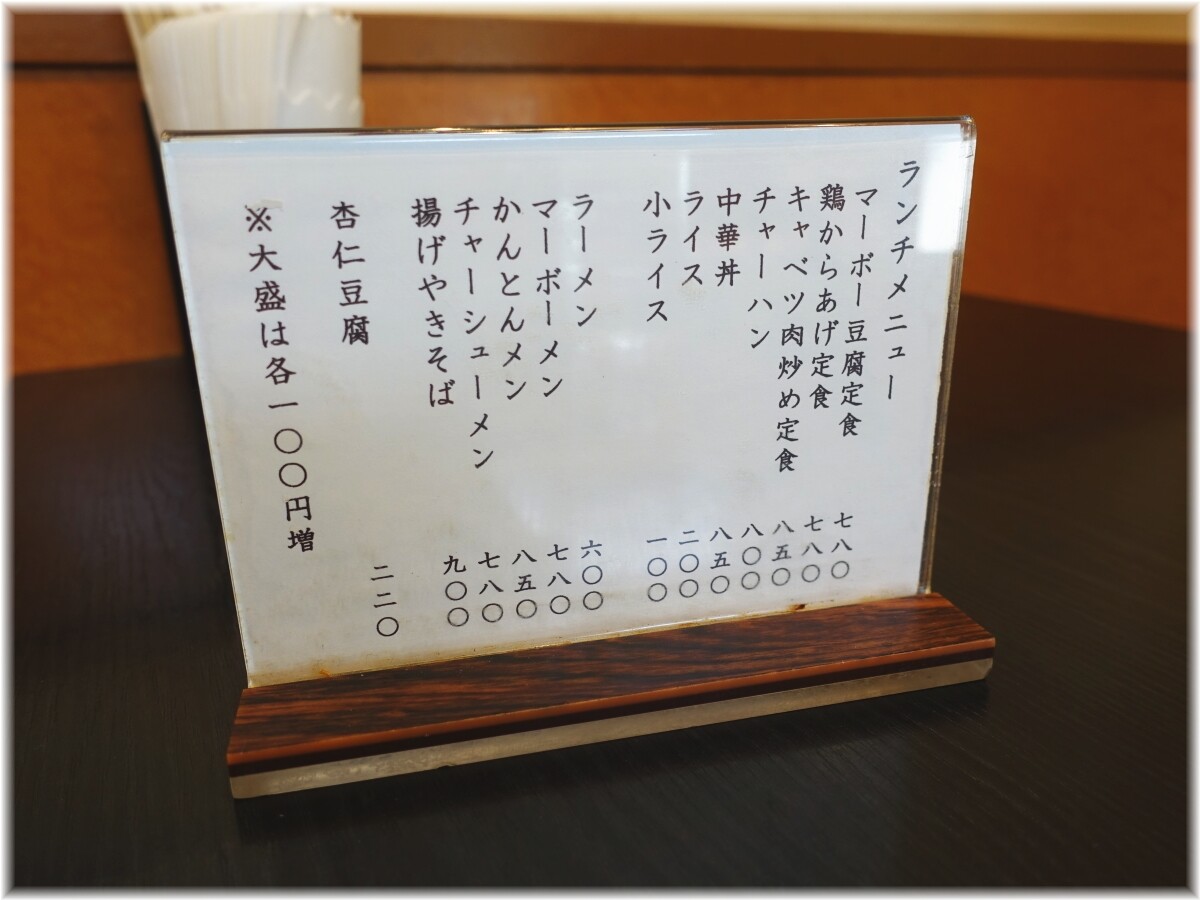 ランチメニュー
マーボー豆腐定食 七八〇
鶏からあげ定食 七八〇
キャベツ肉炒め定食 八五〇
チャーハン 八〇〇
中華丼 八五〇
ライス 二〇〇
小ライス 一〇〇
ラーメン 六〇〇
マーボーメン 七八〇
かんとんメン 八五〇
チャーシューメン 七八〇
揚げやきそば 九〇〇
杏仁豆腐 二二〇
※大盛は各一〇〇円増